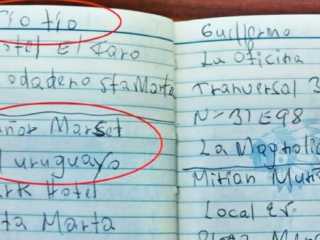 Tío tío
ostel El Faro
odadero sta Marta
ñor Marset
l uruguayo
ark Hotel
ta Marta
Guillermo
La Oficina
Tranversal 3
N-31E98
La Magnolia
Mirian Muñ
Local